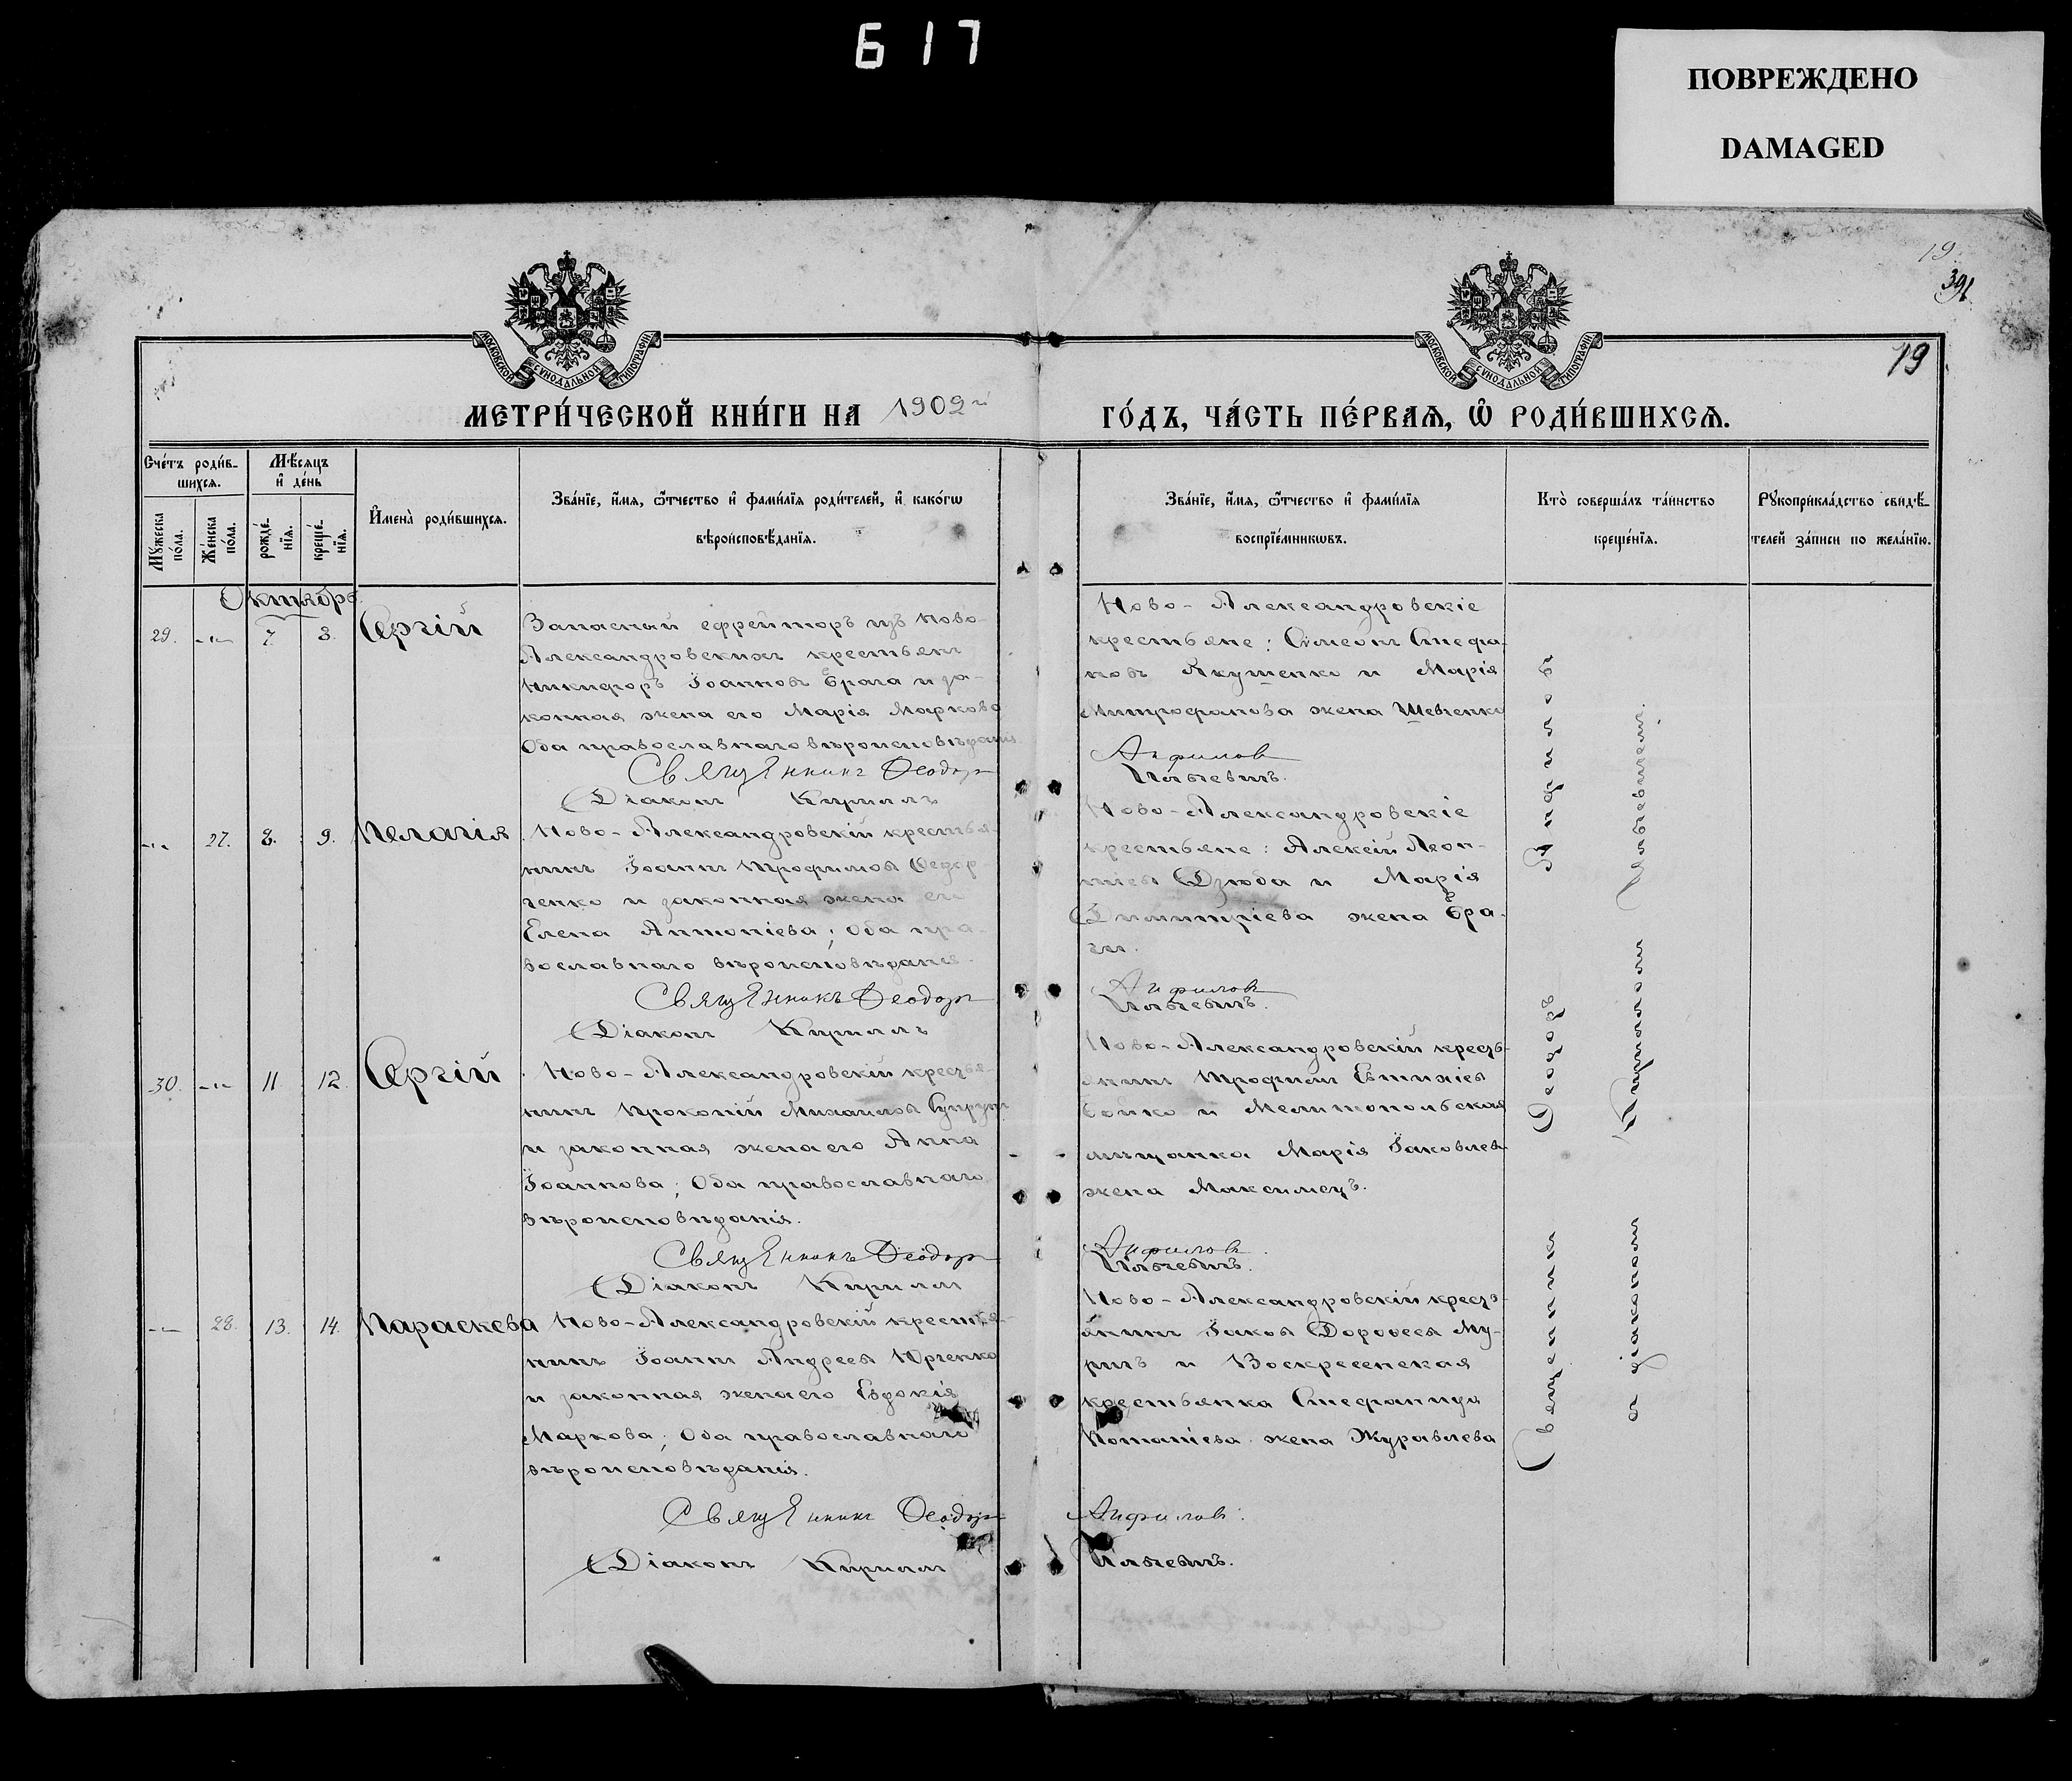 617
ПОВРЕЖДЕНО
DAMAGED
19.
391
19
МОСКОВСКОЙ СУНОДАЛЬНОЙ ТИПОГРАФІИ
МОСКОВСКОЙ СУНОДАЛЬНОЙ ТИПОГРАФІИ
МЕТРИ́ЧЕСКОЙ КНИ́ГИ НА 1902й ГО́ДЪ, ЧА́СТЬ ПЕ́РВАѦ, Ѡ҆ РОДИ́ВШИХСѦ.
Сче́тъ роди́в-
шихсѧ.
Мꙋжеска по́ла.
Же́нска по́ла.
Мѣ́сѧцъ
и҆ де́нь
рожде́-
нїѧ.
креще́-
нїѧ.
И҆мена̀ роди́вшихсѧ.
Зва́нїе, и҆́мѧ, ѻ҆́тчество и҆ фами́лїѧ роди́телей, и҆ како́гѡ
вѣроисповѣ́данїѧ.
Зва́нїе, и҆́мѧ, ѻ҆́тчество и҆ фами́лїѧ
воспрїе́мникѡвъ.
Кто̀ соверша́лъ та́инство
креще́нїѧ.
Рꙋкоприкла́дство свидѣ́-
телей за́писи по жела́нїю.
Октябрь
29. -„- 7. 8. Сергій
Запасный ефрейторъ изъ Ново-
Александровскихъ крестьянъ
Никифоръ Іоанновъ Брага и за-
конная жена его Марія Маркова
Оба православнаго вѣроисповѣданія
Священникъ Ѳеодоръ
Діаконъ Кириллъ
Ново-Александровскіе
крестьяне: Симеонъ Стефа-
новъ Якушенко и Марія
Митрофанова жена Шевченко
Анфиловъ
Ильчевичъ.
-„- 27. 8. 9. Пелагія
Ново-Александровскій крестья-
нинъ Іоаннъ Трофимовъ Федор-
ченко и законная жена его
Елена Антоніева; Оба пра-
вославнаго вѣроисповѣданія.
Священникъ Ѳеодоръ
Діаконъ Кириллъ
Ново-Александровскіе
крестьяне: Алексій Леон-
тіевъ Дзюба и Марія
Димитріева жена Бра-
ги.
Анфиловъ
Ильчевичъ.
30. -„- 11. 12. Сергій
Ново-Александровскій крестья-
нинъ Прокопій Михаиловъ Супрунъ
и законная жена его Анна
Іоаннова; Оба православнаго
вѣроисповѣданія.
Священникъ Ѳеодоръ
Діаконъ Кириллъ
Ново-Александровскій кресть-
янинъ Трофимъ Евтихіевъ
Бойко и Мелитопольская
мѣщанка Марія Іаковлева
жена Максимецъ.
Анфиловъ.
Ильчевичъ.
-„- 28. 13. 14. Параскева
Ново-Александровскій крестья-
нинъ Іоаннъ Андреевъ Юрченко
и законная жена его Евдокія
Маркова; Оба православнаго
вѣроисповѣданія.
Священникъ Ѳеодоръ
Діаконъ Кириллъ
Ново-Александровскій кресть-
янинъ Іаковъ Дороѳеевъ Му-
ричъ и Воскресенская
крестьянка Стефанида
Потапіева жена Журавлева
Анфиловъ.
Ильчевичъ.
Священникъ Ѳеодоръ Анфиловъ
съ діакономъ Кирилломъ Ильчевичемъ.